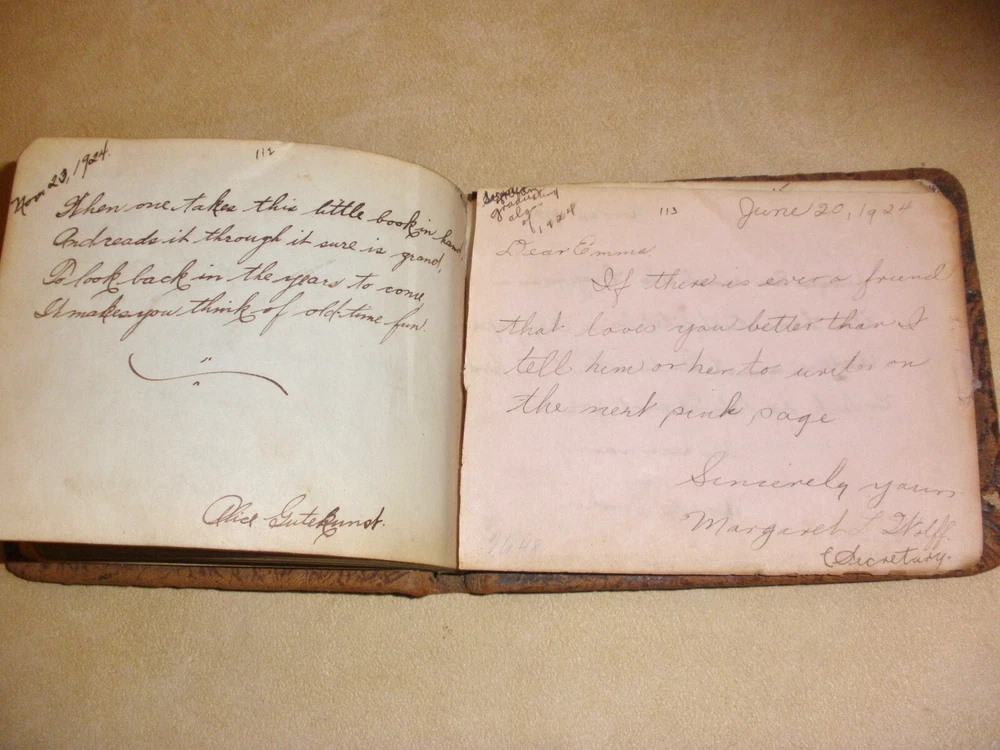 Nov 23, 1924.
112
When one takes this little book in hand,
And reads it through it sure is grand,
To look back in the years to come,
It makes you think of old-time fun.
Alice Gutekunst.
graduating
of 1924
113
June 20, 1924
Dear Emma
If there is ever a friend
that loves you better than I
tell him or her to write on
the next pink page
Sincerely yours
Margaret L Wolff.
(Secretary.